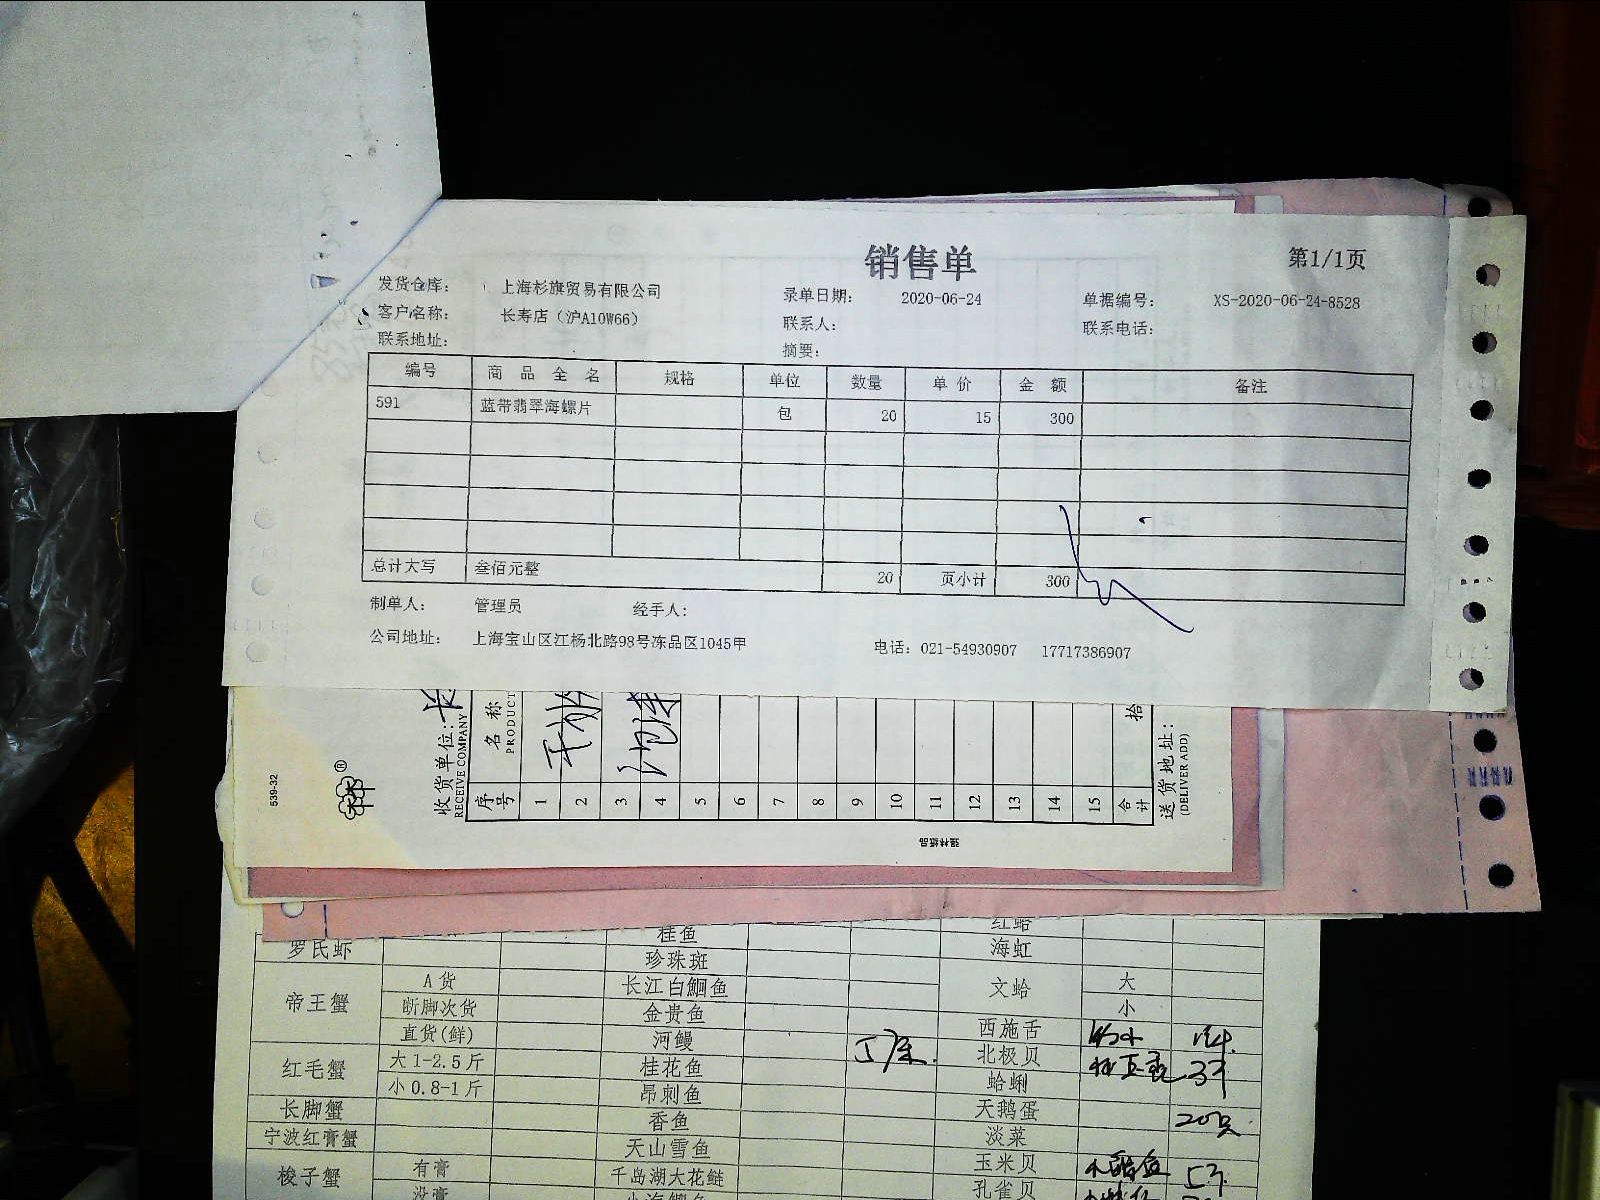 销售单
第1/1页
发货仓库： 上海杉旗贸易有限公司 录单日期： 2020-06-24 单据编号： XS-2020-06-24-8528
客户名称： 长寿店（沪A10W66） 联系人： 联系电话：
联系地址： 摘要：
编号 商品全名 规格 单位 数量 单价 金额 备注
591 蓝带翡翠海螺片 包 20 15 300
总计大写 叁佰元整 20 页小计 300
制单人： 管理员 经手人：
公司地址： 上海宝山区江杨北路98号冻品区1045甲 电话：021-54930907 17717386907
539-32
收货单位：
RECEIVE COMPANY
序号 名称
PRODUCT
1
2
3
4
5
6
7
8
9
10
11
12
13
14
15
合计 拾
送货地址：
(DELIVER ADD)
罗氏虾 桂鱼 红蛤
珍珠斑 海虹
帝王蟹 A货 长江白鮰鱼 文蛤 大
断脚次货 金贵鱼 小
直货(鲜) 河鳗 西施舌
红毛蟹 大1-2.5斤 桂花鱼 北极贝
小0.8-1斤 昂刺鱼 蛤蜊
长脚蟹 香鱼 天鹅蛋
宁波红膏蟹 天山雪鱼 淡菜
梭子蟹 有膏 千岛湖大花鲢 玉米贝
没膏 孔雀贝